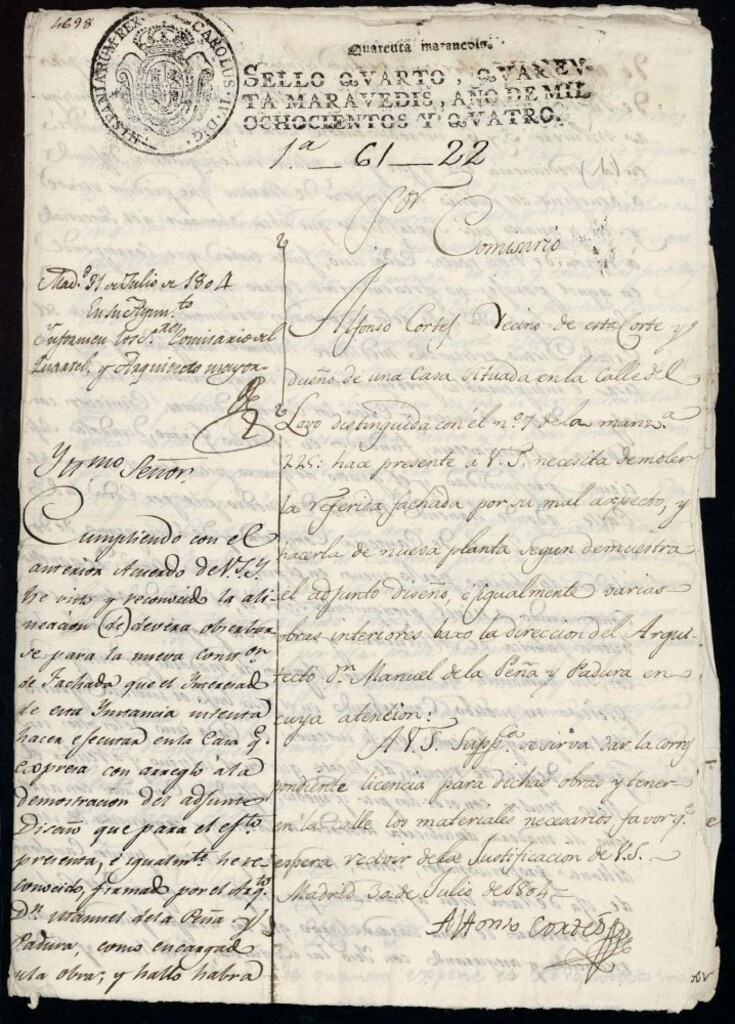 4698
HISPANIARUM REX. CAROLUS. IV. D. G.
Quarenta maravedis.
SELLO QVARTO, QVAREN-
TA MARAVEDIS, AÑO DE MIL
OCHOCIENTOS Y QVATRO.
1.ª — 61 — 22
(1)
S.or
Comisario
Alfonso Cortes Vecino de esta Corte y
dueño de una Casa situada en la Calle del
Lovo distinguida con el n.º 7 de la manz.ª
225: hace presente a V.S. necesita demoler
la referida fachada por su mal aspecto, y
hacerla de nueva planta segun demuestra
el adjunto diseño, e igualmente varias
obras interiores baxo la direccion del Arqui-
tecto D.n Manuel de la Peña y Padura en
cuya atencion:
A V.S. Supp.ca se sirva dar la corres
pondiente licencia para dichas obras y tener
en la calle los materiales necesarios favor q.e
espera recivir de la Justificacion de V.S.
Madrid 30 de Julio de 1804
Alfonso Cortés
Mad.d 31 de Julio de 1804
En su Ayun.to
Ynformen los S.res Comisario del
Quartel, y Arquitecto mayor
Yll.mo Señor.
Cumpliendo con el
anterior Acuerdo de V.S.Y.
he visto y reconocido la ali-
neacion (de) devera observar-
se para la nueva constr.on
de Fachada que el Interesado
de esta Ynstancia intenta
hacer ejecutar en la Casa q.e
expresa con arreglo a la
demostracion del adjunto
Diseño que para el ef.to
presenta, e igualm.te he re-
conocido, firmado por el Arq.to
D.n Manuel de la Peña y
Padura, como encargado
de la obra; y hallo habra